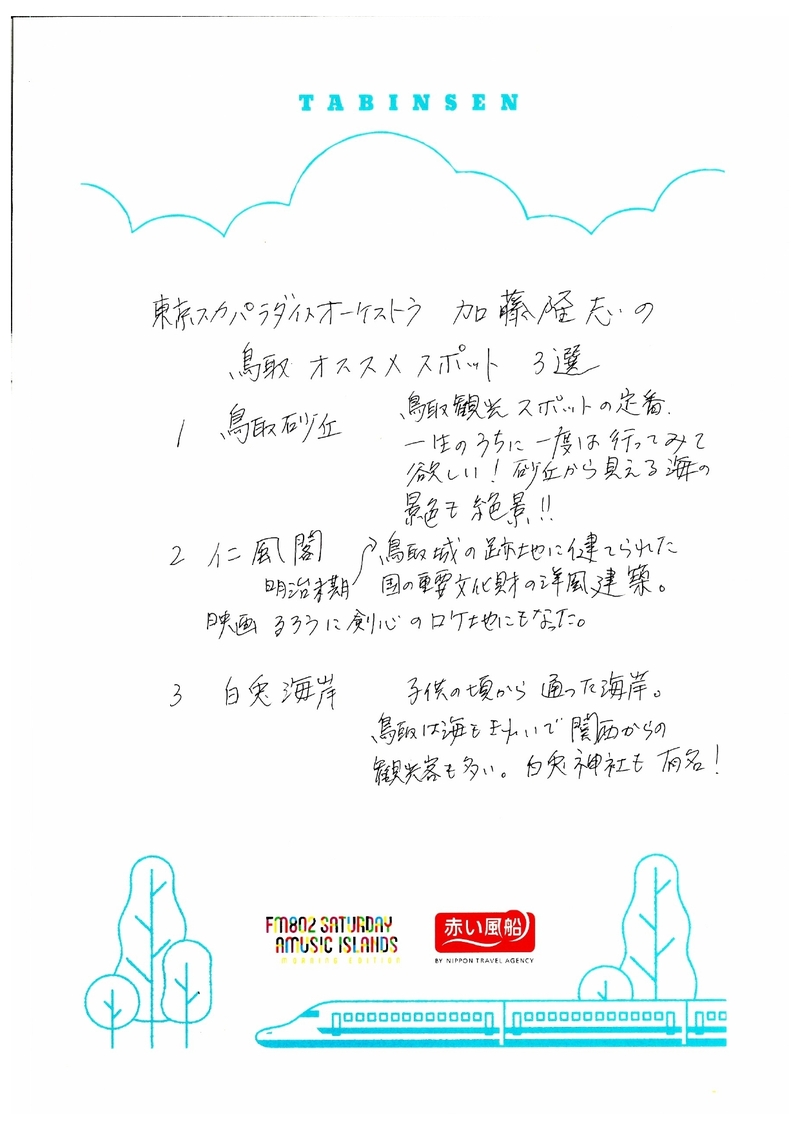 TABINSEN
東京スカパラダイスオーケストラ 加藤隆志の
鳥取 オススメ スポット 3選
1 鳥取砂丘 鳥取観光 スポットの定番.
一生のうちに 一度は 行ってみて
欲しい! 砂丘から見える海の
景色も 絶景!!
2 仁風閣 鳥取城の跡地に建てられた
明治末期 国の重要文化財の洋風建築。
映画 るろうに剣心 のロケ地にもなった。
3 白兎海岸 子供の頃から 通った海岸。
鳥取は海もきれいで 関西からの
観光客も多い。 白兎神社も 有名!
FM802 SATURDAY
AMUSIC ISLANDS
MORNING EDITION
赤い風船
BY NIPPON TRAVEL AGENCY